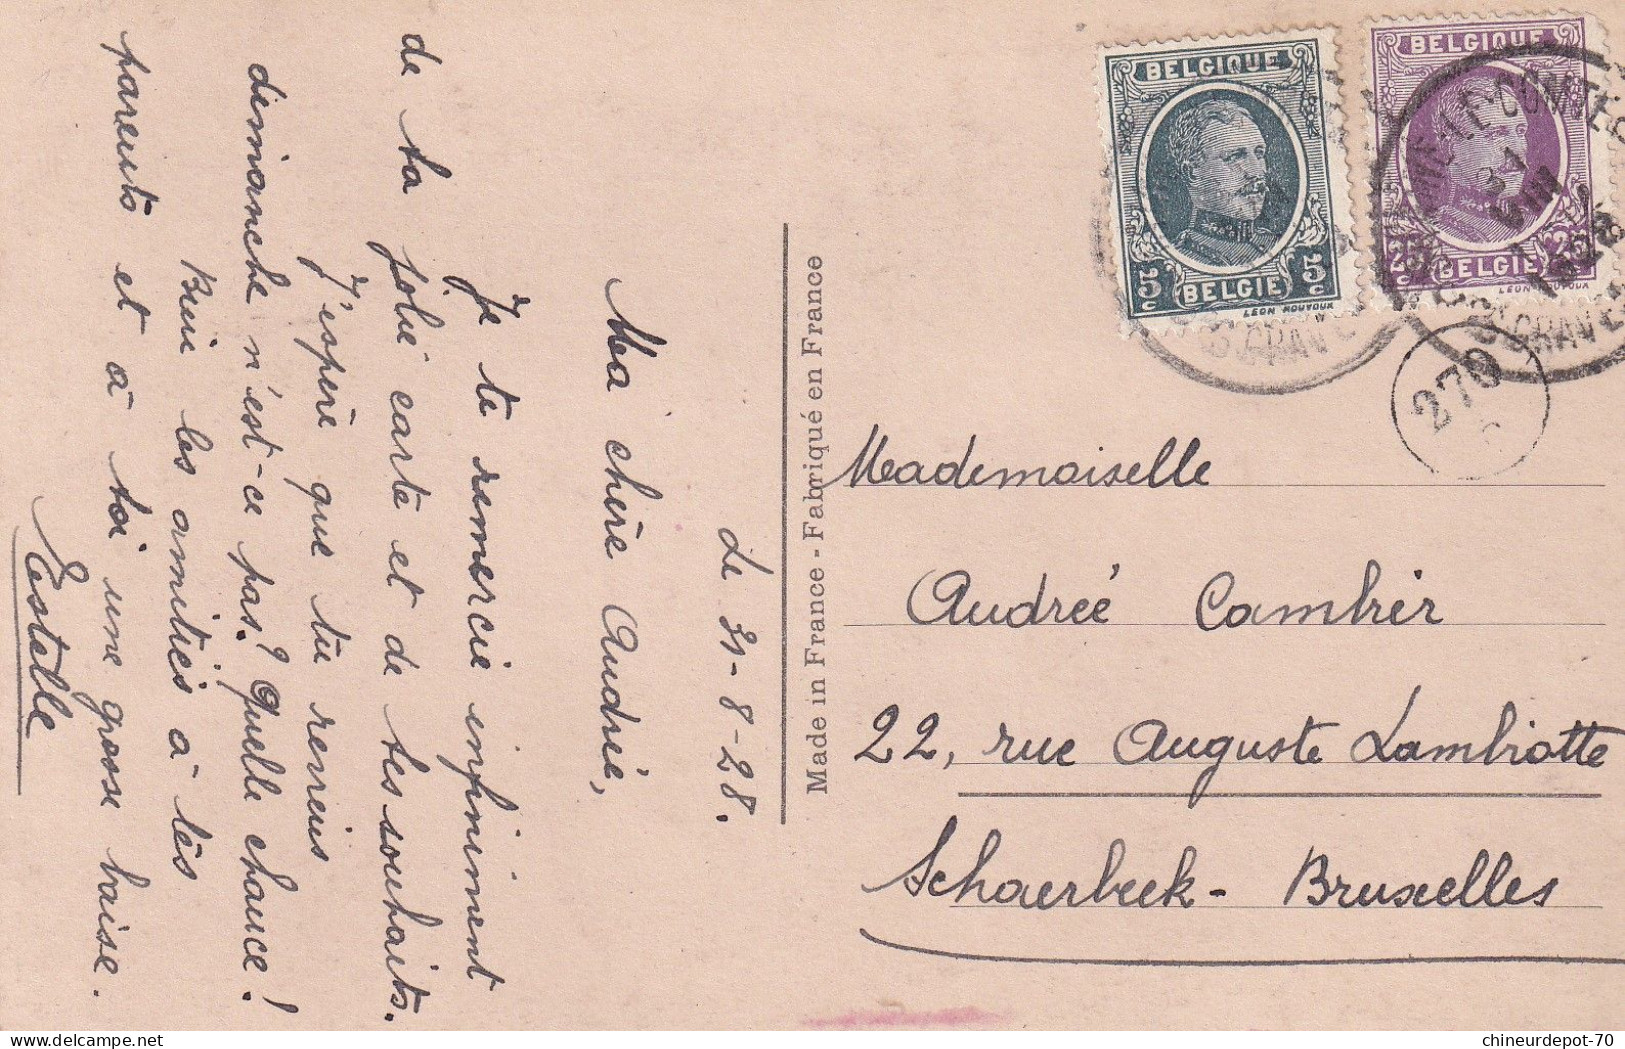 Le 31-8-28.
Ma chère Andrée,
Je te remercie infiniment
de ta jolie carte et de tes souhaits.
J'espère que tu reviens
dimanche n'est-ce pas? Quelle chance!
Bien les amitiés à tes
parents et à toi une grosse baise.
Estelle
Made in France - Fabriqué en France
BELGIQUE
5c 5c
BELGIE
LEON HOUYOUX
BELGIQUE
25 25
BELGIE
LEON HOUYOUX
LE-COMTE
VIII
1928
'S GRAVE
270
Mademoiselle
Andrée Cambier
22, rue Auguste Lambiotte
Schaerbeek - Bruxelles
chineurdepot-70